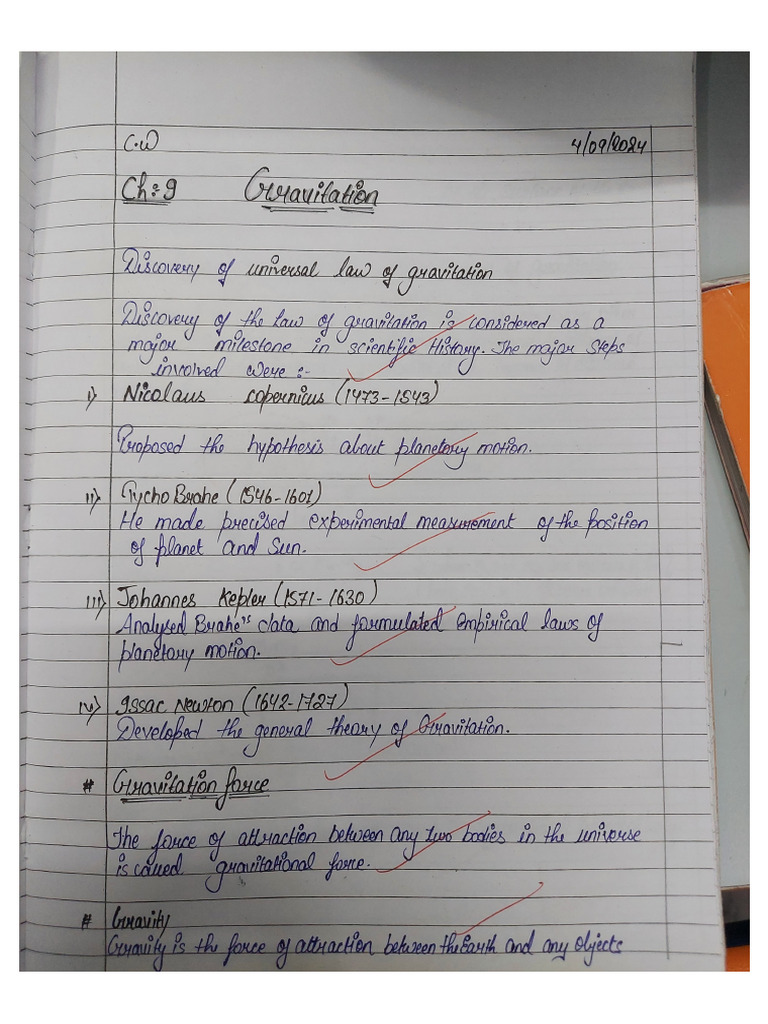 C.W 4/09/2024
Ch:9 Gravitation
Discovery of universal law of gravitation
Discovery of the Law of gravitation is considered as a
major milestone in scientific History. The major Steps
involved were :-
i) Nicolaus copernicus (1473-1543)
Proposed the hypothesis about planetory motion.
ii) Tycho Brahe (1546-1601)
He made precised experimental measurement of the position
of planet and Sun.
iii) Johannes Kepler (1571-1630)
Analysed Brahe's data and formulated empirical laws of
planetory motion.
iv) Issac Newton (1642-1727)
Developed the general theory of Gravitation.
# Gravitation force
The force of attraction between any two bodies in the universe
is called gravitational force.
# Gravity
Gravity is the force of attraction between the Earth and any objects